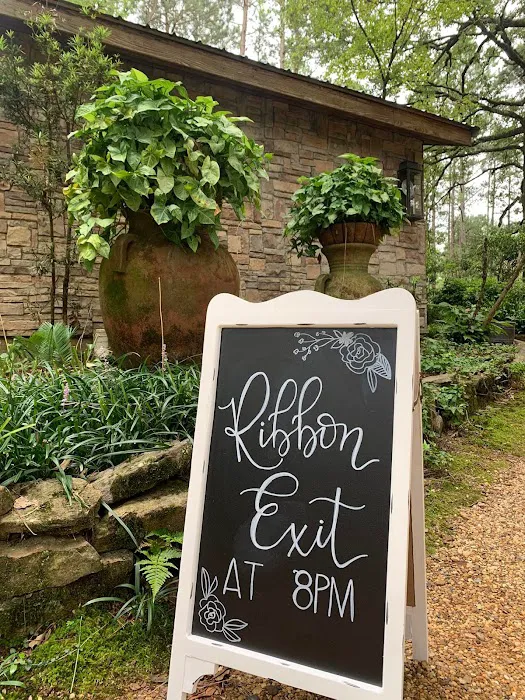 Ribbon
Exit
AT 8PM